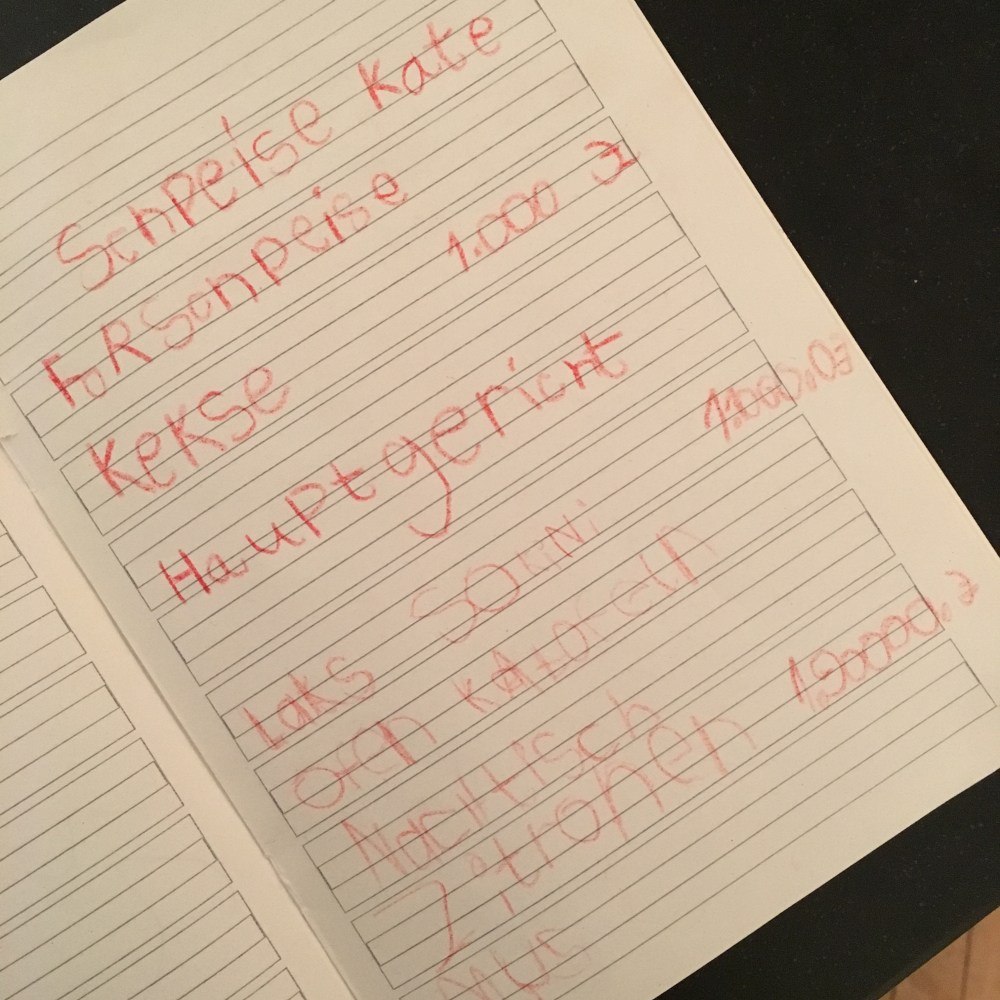 Schpeise Kate
FoRSchpeise
Kekse 1.000
Hauptgericht
Laks SOKiNi
Ofen KAtOFelN
Nachtisch
Zitronen
MUS